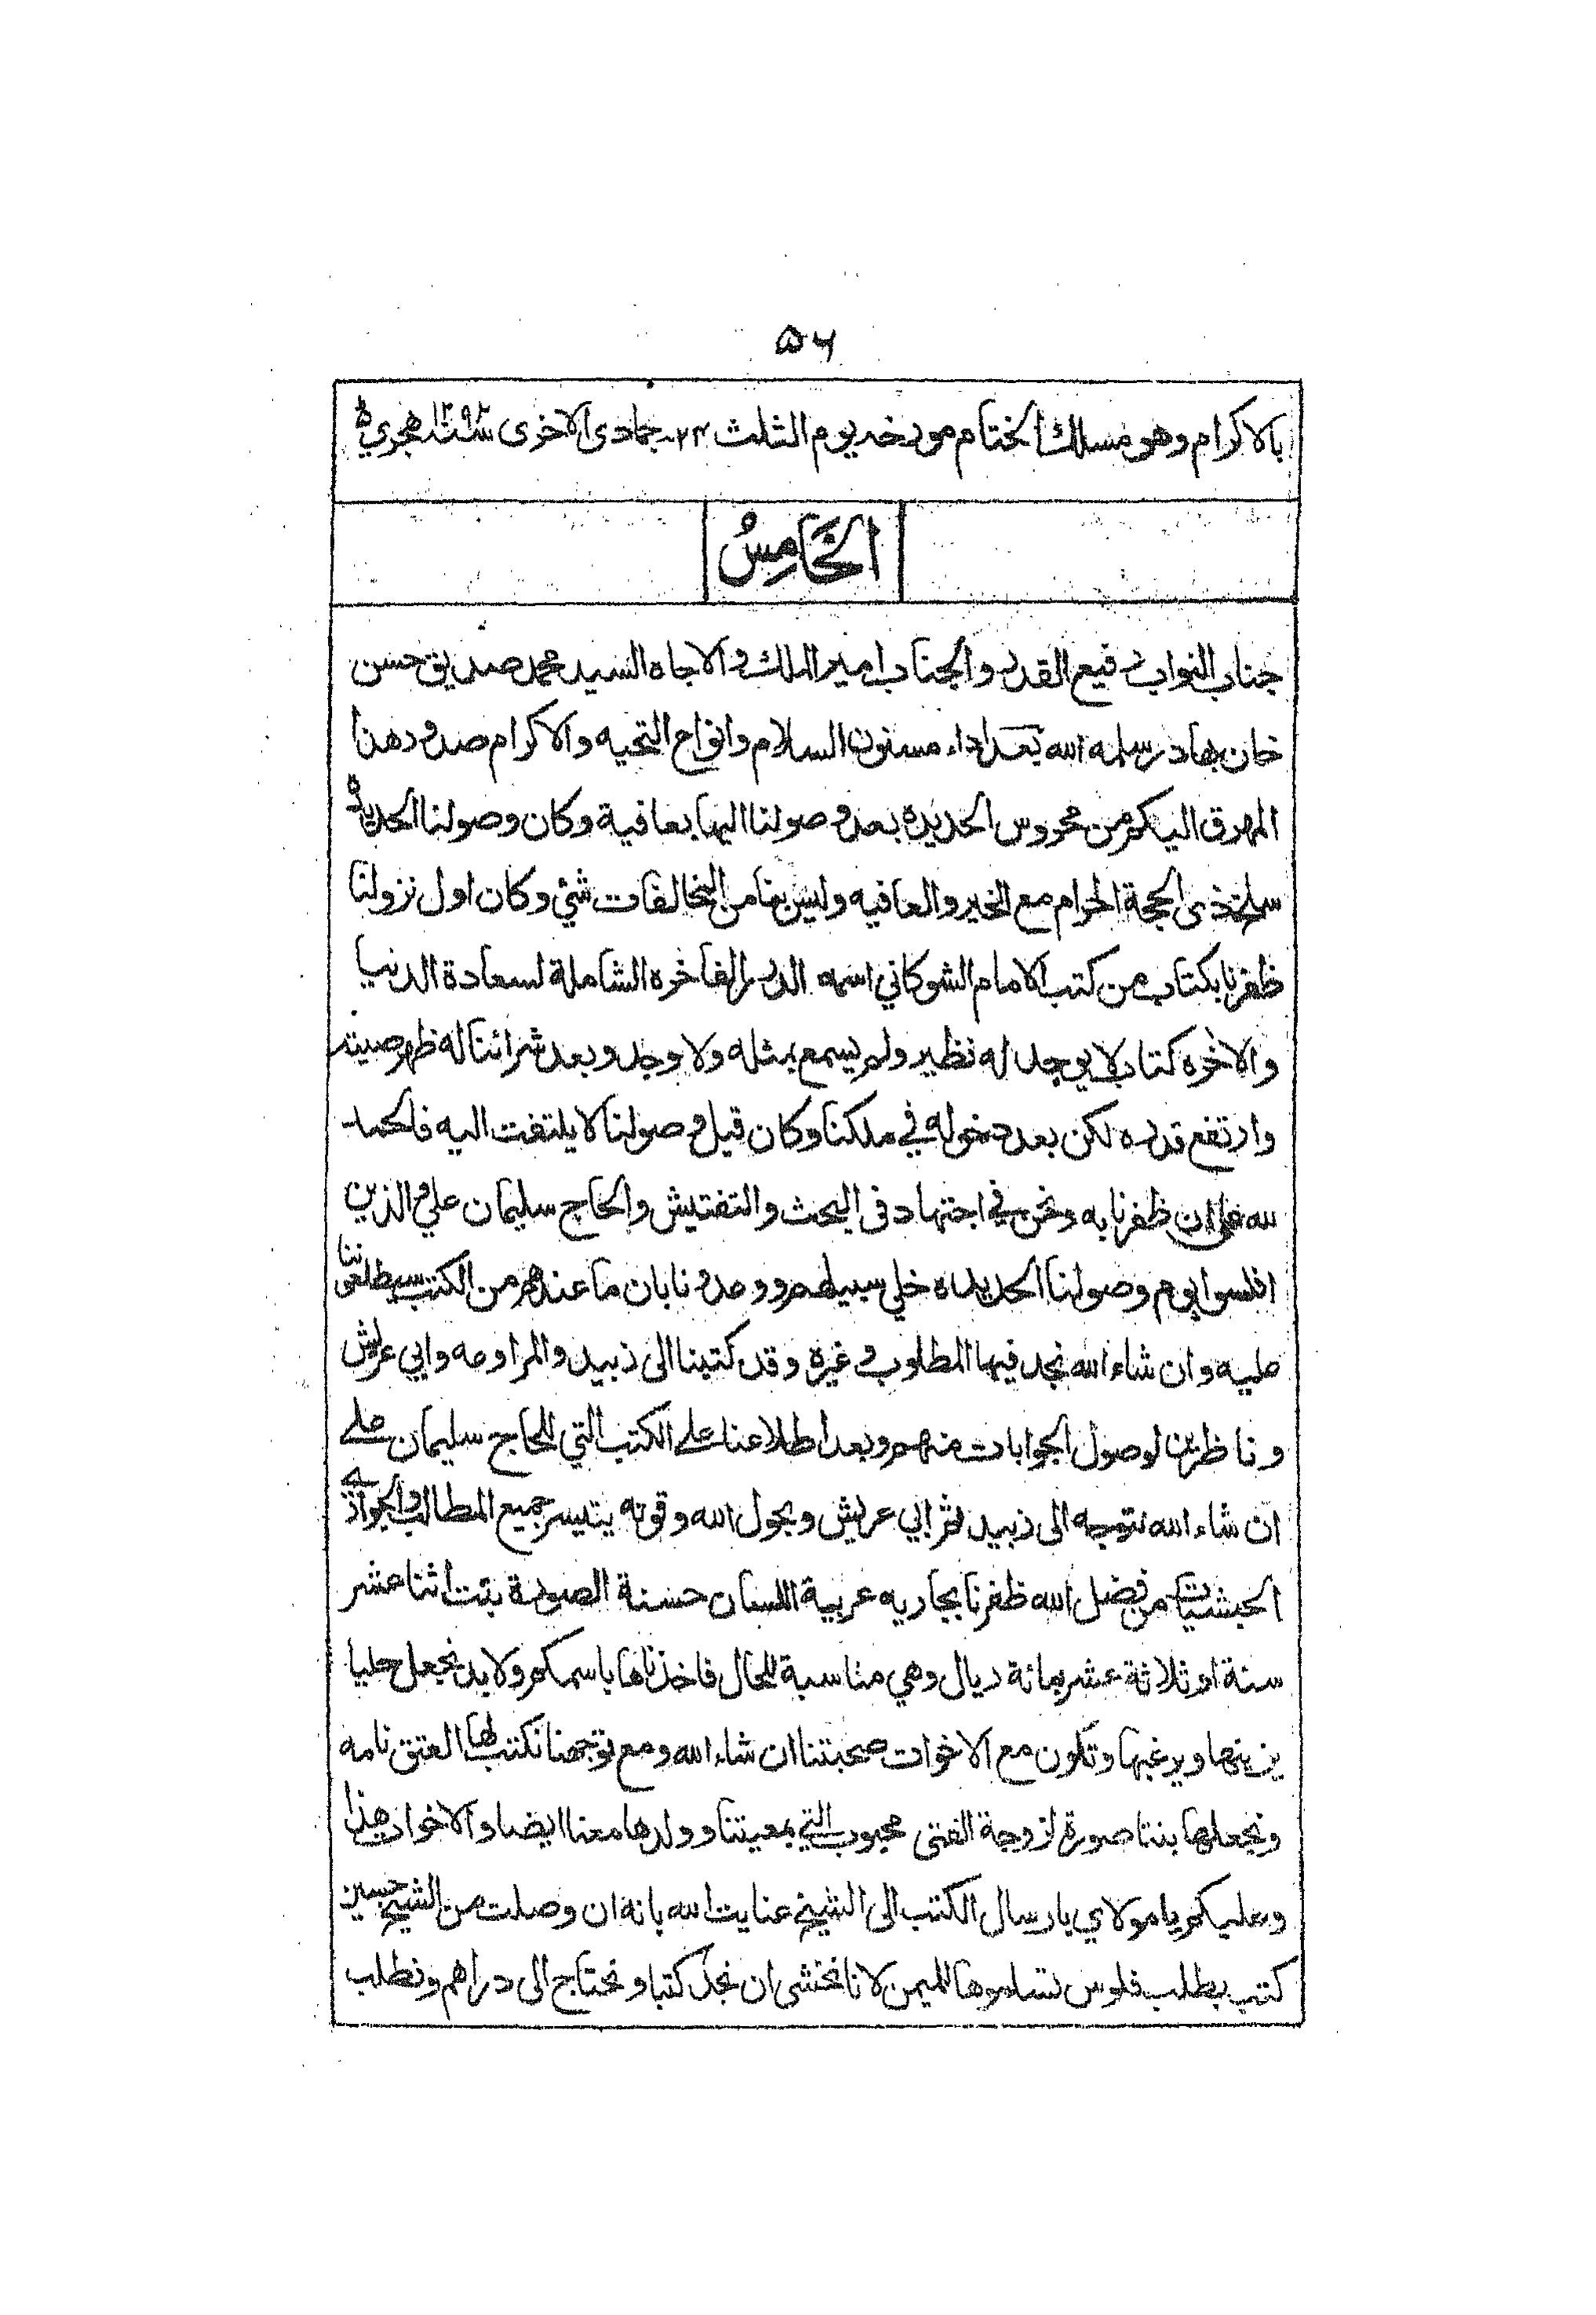 ۵۶
بالاكرام وهو مسك الختام مورخه يوم الثلث ۲۳ جمادى الاخرى سنة ۱۲۹۲ هجريه
الخَامِسُ
جناب النواب رفيع القدر والجناب امير الملك والاجاه السيد محمد صديق حسن
خان بهادر سلمه الله بعد اداء مسنون السلام وانواع التحيه والاكرام صدور هذا
المهرق اليكم من محروس الحديده بعد وصولنا اليها بعافية وكان وصولنا الحديده
سلخ ذى الحجة الحرام مع الخير والعافيه وليس بنا من المخالفات شئ وكان اول نزولنا
ظفرنا بكتاب من كتب الامام الشوكاني اسمه الدرر الفاخره الشاملة لسعادة الدنيا
والاخره كتاب لا يوجد له نظير ولم يسمع بمثله ولا وجد وبعد شرائنا له ظهر صيته
وارتفع قدره لكن بعد دخوله في ملكنا وكان قبل وصولنا لا يلتفت اليه فالحمد
لله على ان ظفرنا به ونحن في اجتهاد فى البحث والتفتيش والحاج سليمان علي والذين
افلسوا يوم وصولنا الحديده خلي سبيلهم ووعدونا بان ما عندهم من الكتب سيطلعوننا
عليه وان شاء الله نجد فيها المطلوب وغيره وقد كتبنا الى زبيد والمراوعه وابي عريش
وناظرين لوصول الجوابات منهم وبعد اطلاعنا على الكتب التي للحاج سليمان على
ان شاء الله نتوجه الى زبيد ثم ابي عريش وبحول الله وقوته يتيسر جميع المطالب والجوارى
الحبشيات من فضل الله ظفرنا بجاريه عربية اللسان حسنة الصورة بنت اثنا عشر
سنة او ثلاثة عشر بمائة ريال وهي مناسبة للحال فاخذناها باسمكم ولا بد نجعل حليا
يزينها ويرغبها وتكون مع الاخوات صحبتنا ان شاء الله ومع توجهنا نكتب لها العتق نامه
ونجعلها بنتا صورة لزوجة الفتى محبوب التي بمعيتنا وولدها معنا ايضا والاخوار هذا
وعليكم يا مولاي بارسال الكتب الى الشيخ عنايت الله بانه ان وصلت من الشيخ حسين
كتب بطلب فلوس تسلموها لليمن لانا نخشى ان نجد كتبا ونحتاج الى دراهم ونطلب